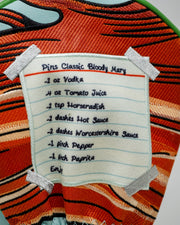 Pins Classic Bloody Mary
-2 oz Vodka
-4 oz Tomato Juice
-1 tsp Horseradish
-2 dashes Hot Sauce
-2 dashes Worcestershire Sauce
-1 pich Pepper
-1 pich Paprika